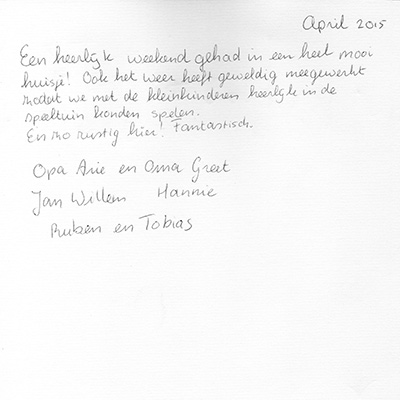 April 2015
Een heerlijk weekend gehad in een heel mooi
huisje! Ook het weer heeft geweldig meegewerkt
zodat we met de kleinkinderen heerlijk in de
speeltuin konden spelen.
En zo rustig hier! Fantastisch.
Opa Arie en Oma Greet
Jan Willem Hannie
Ruben en Tobias